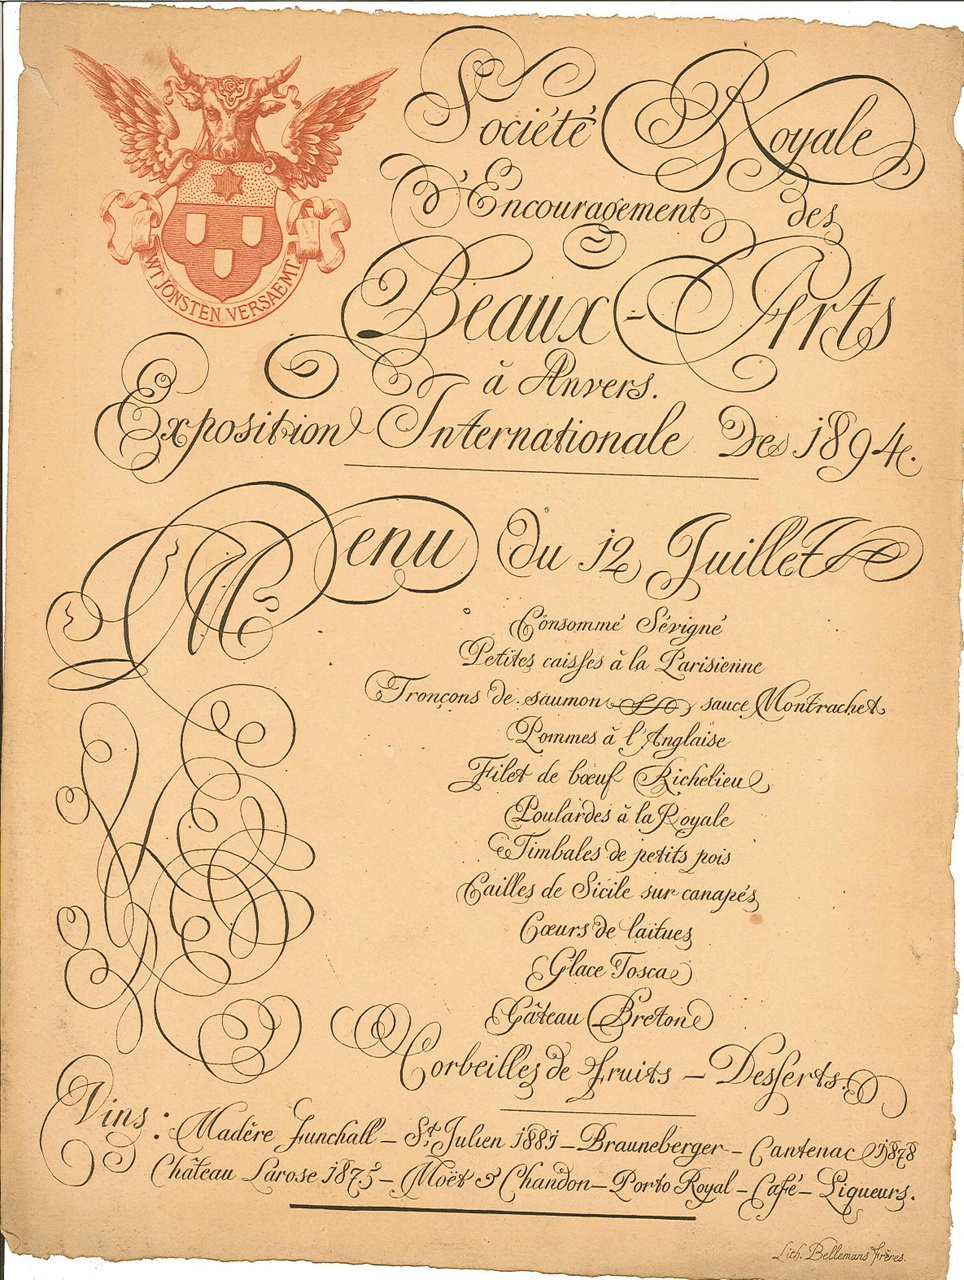 WT JONSTEN VERSAEMT
Société Royale
d'Encouragement des
Beaux-Arts
à Anvers.
Exposition Internationale Des 1894.
Menu du 12 Juillet
Consommé Sévigné
Petites caisses à la Parisienne
Tronçons de saumon sauce Montrachet
Pommes à l'Anglaise
Filet de bœuf Richelieu
Poulardes à la Royale
Timbales de petits pois
Cailles de Sicile sur canapés
Cœurs de laitues
Glace Tosca
Gâteau Breton
Corbeilles de fruits – Desserts.
Vins: Madère Funchall – St Julien 1881 – Brauneberger – Cantenac 1878
Château Larose 1875 – Moët & Chandon – Porto Royal – Café – Liqueurs.
Lith. Bellemans Frères.